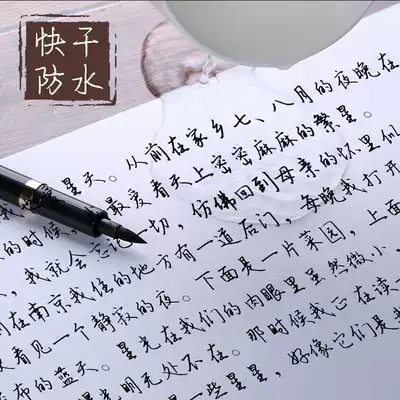 快干
防水
星天。从前在家乡七、八月的夜晚在
的时候，最爱看天上密密麻麻的繁星。
，我就会忘记一切，仿佛回到母亲的怀里似
在南京我住的地方有一道后门，每晚我打开
看见一个静寂的夜。下面是一片菜园，上面
布的蓝天。星光在我们的肉眼里虽然微小，
光明无处不在。那时候我正在读
一些星星，好像它们是我